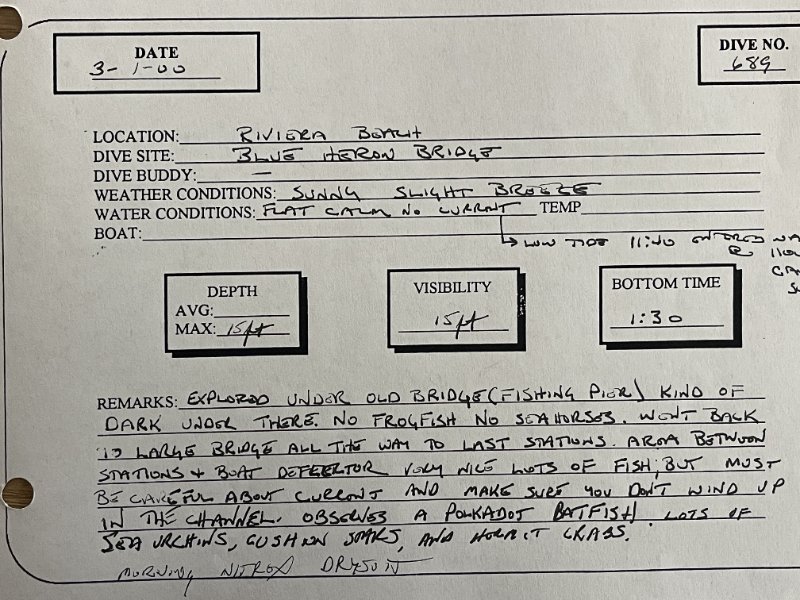 DATE
3-1-00
DIVE NO.
689
LOCATION: RIVIERA BEACH
DIVE SITE: BLUE HERON BRIDGE
DIVE BUDDY: —
WEATHER CONDITIONS: SUNNY SLIGHT BREEZE
WATER CONDITIONS: FLAT CALM NO CURRENT TEMP
BOAT:
LOW TIDE 11:40 ENTERED
@
DEPTH
AVG:
MAX: 15ft
VISIBILITY
15ft
BOTTOM TIME
1:30
REMARKS: EXPLORED UNDER OLD BRIDGE (FISHING PIER) KIND OF
DARK UNDER THERE. NO FROGFISH NO SEAHORSES. WENT BACK
TO LARGE BRIDGE ALL THE WAY TO LAST STATIONS. AREA BETWEEN
STATIONS + BOAT DEFLECTOR VERY NICE LOTS OF FISH; BUT MUST
BE CAREFUL ABOUT CURRENT AND MAKE SURE YOU DON'T WIND UP
IN THE CHANNEL. OBSERVED A POLKADOT BATFISH. LOTS OF
SEA URCHINS, CUSHION STARS, AND HERMIT CRABS.
MORNING NITROX DRYSUIT